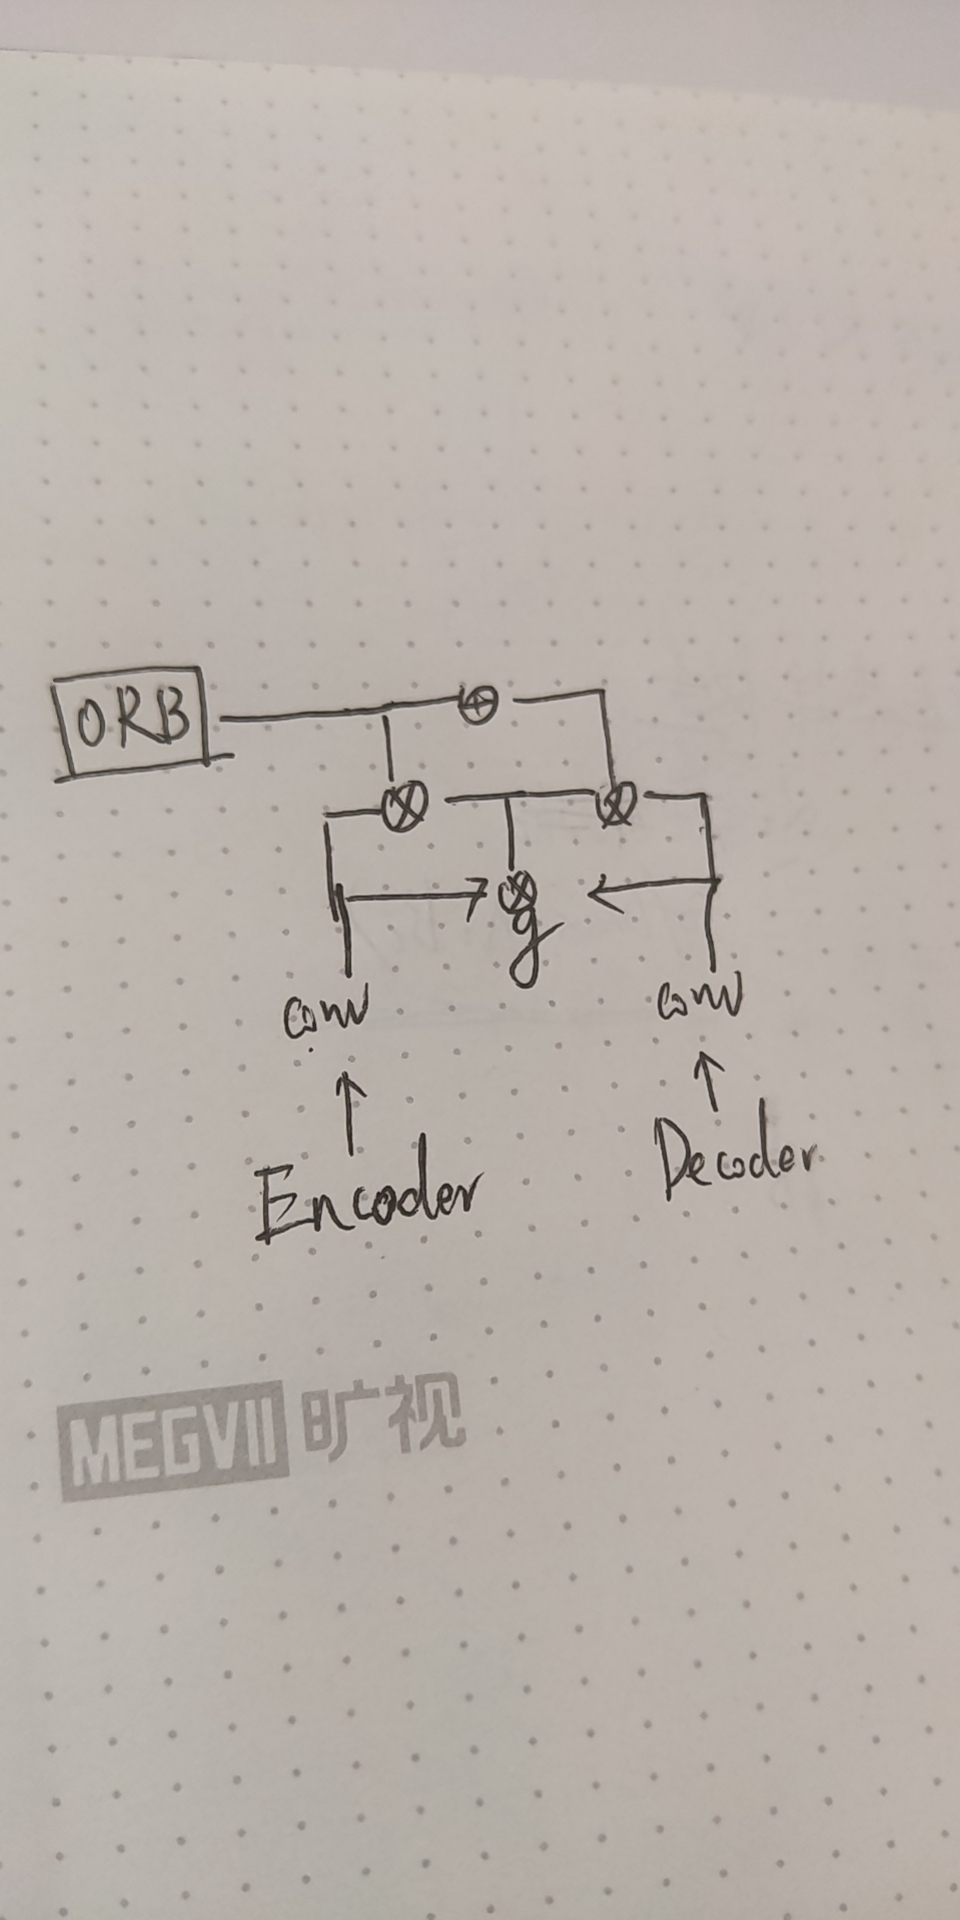 ORB
g
conv
conv
Encoder
Decoder
MEGVII 旷视